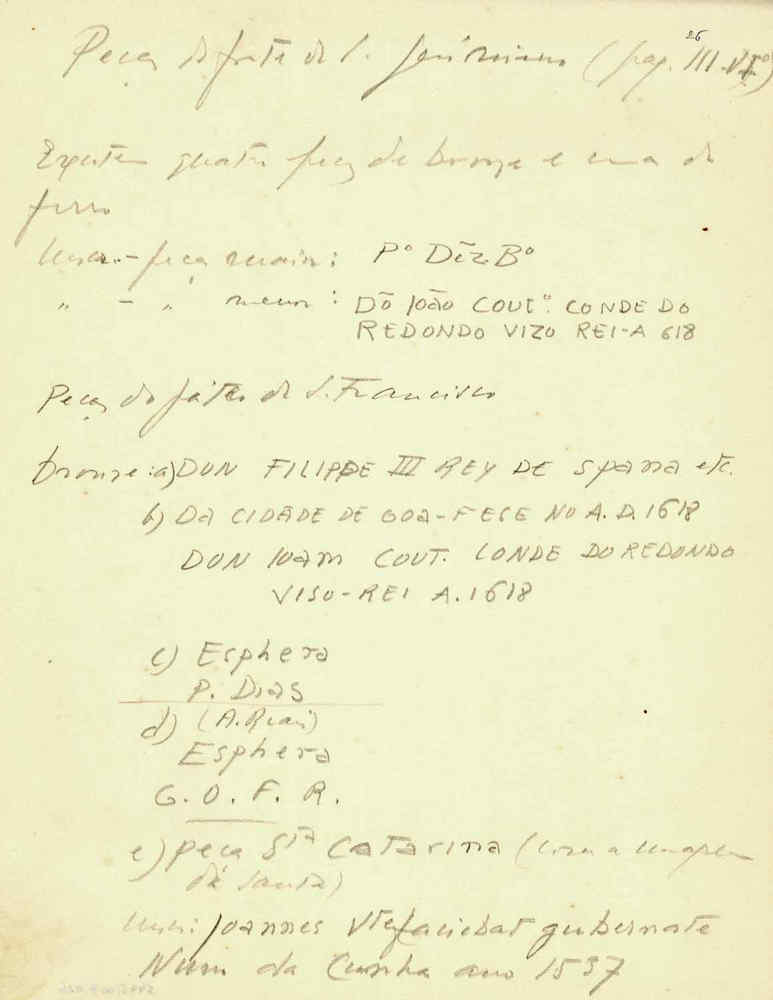 26
Peças do forte de S. Jerónimo (pag. III Vº)
Existem quatro peças de bronze e uma de
ferro
peça maior: Pº Dĩz. Bº
„ - „ menor: DÕ JOÃO COUTº. CONDE DO
REDONDO VIZO REI-A 618
Peças do forte de S. Francisco
bronze: a) DON FILIPPE III REY DE Spana etc.
b) DA CIDADE DE GOA-FECE NO A.D. 1618
DON IOAM COUT. CONDE DO REDONDO
VISO-REI A. 1618
c) Esphera
P. DIAS
d) (A. Reais)
Esphera
G. O. F. R.
e) peça Sta Catarina (com a imagem
da Santa)
Joannes Vte faciebat gubernate
Num da Cunha ano 1537